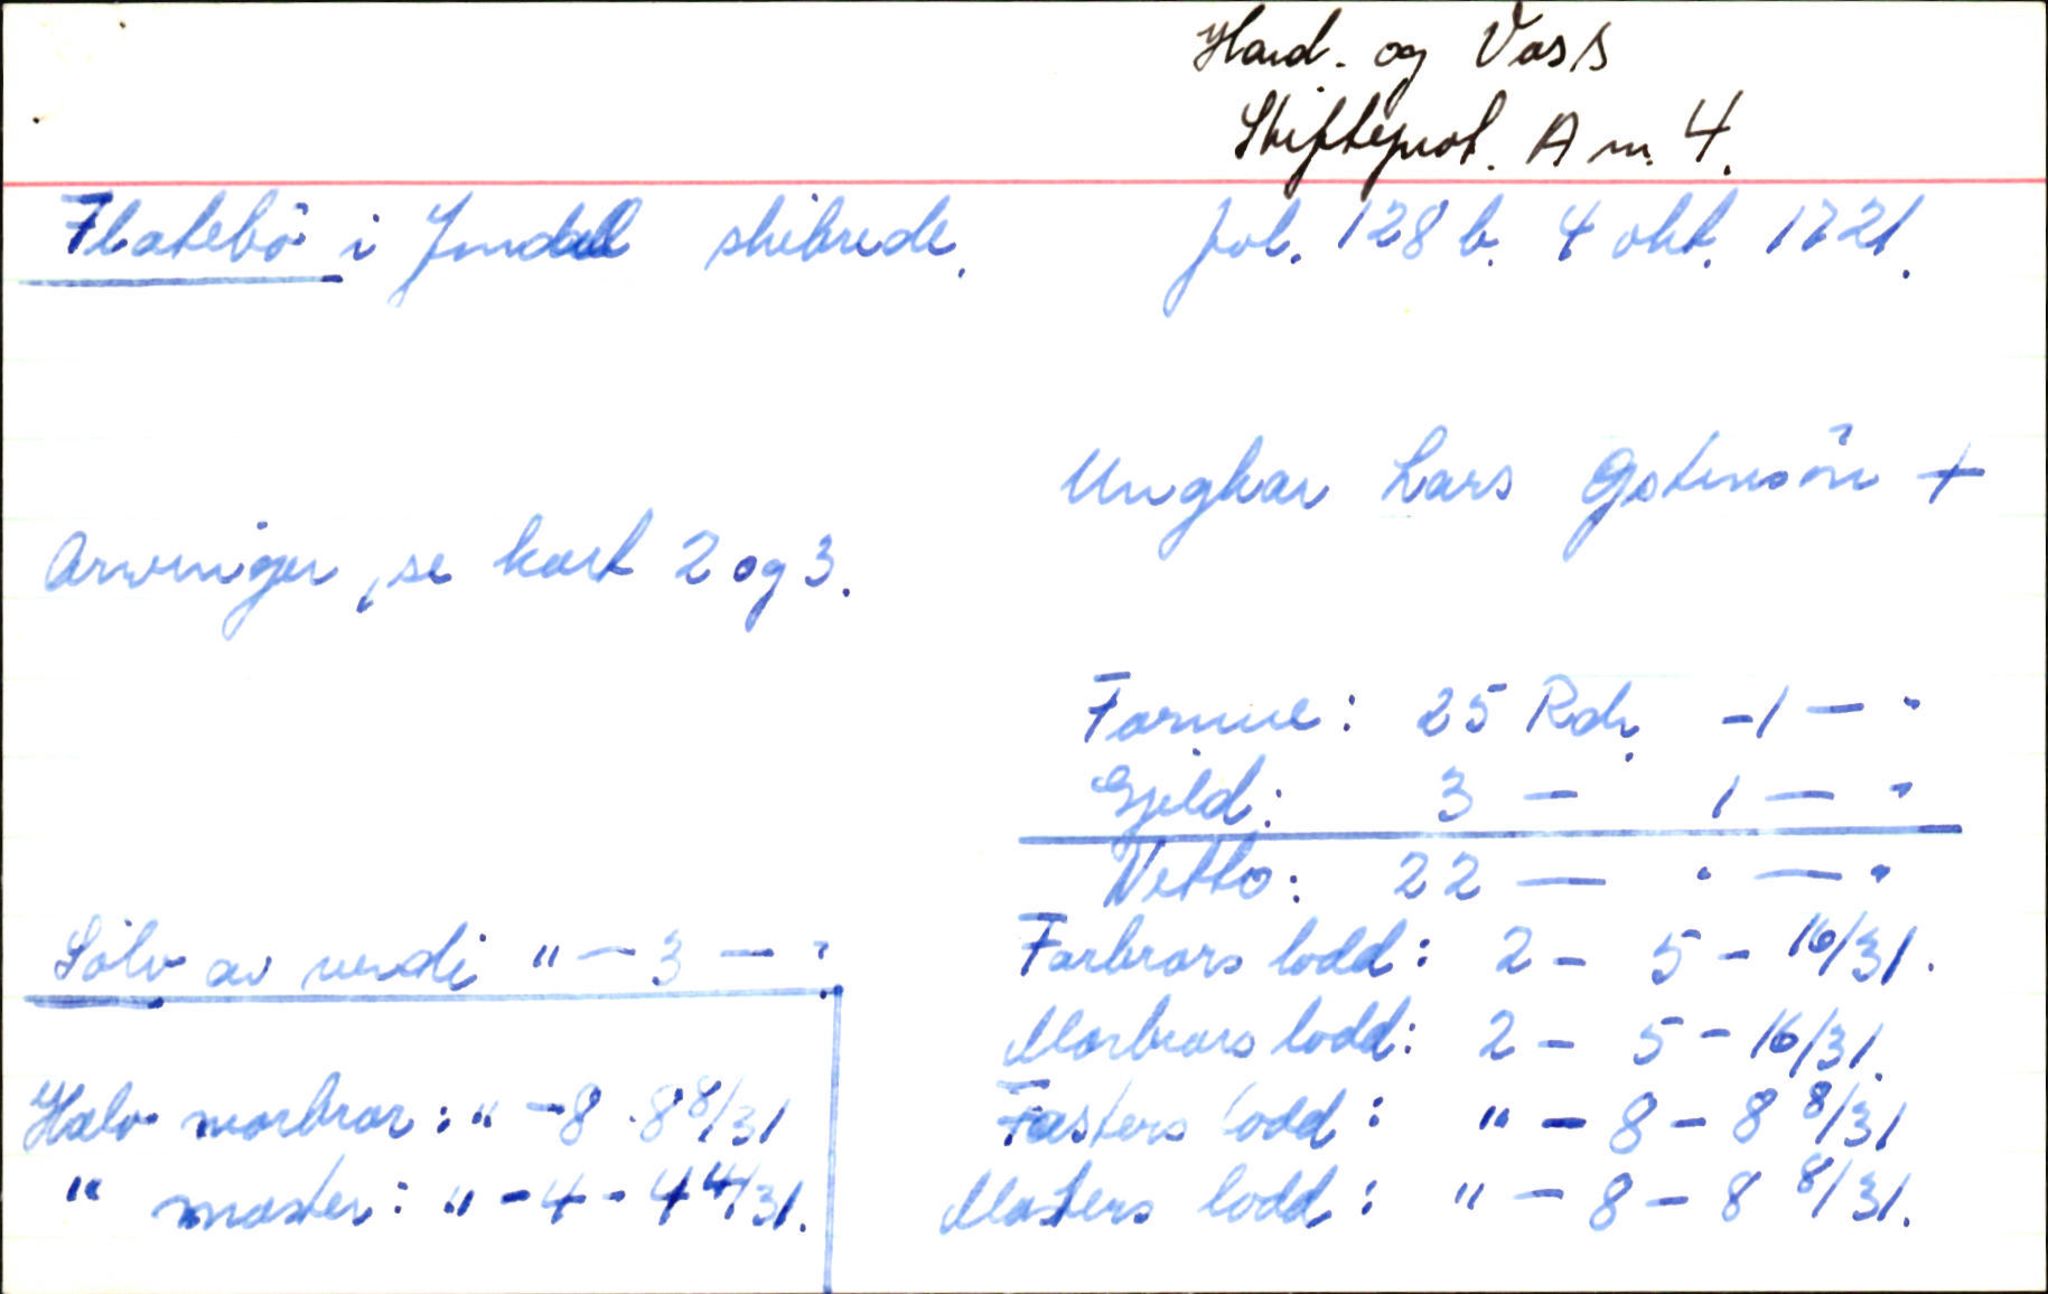 Hard. og Voss
Skifteprot. A nr. 4.
Flatebö i Jondal skibrede. fol. 128 b. 4 okt. 1721.
Ungkar Lars Östensön +
Arvinger, se kort 2 og 3.
Formue: 25 Rdr. - 1 — "
Gjeld: 3 — 1 — "
Netto: 22 — " — "
Sölv av verdi " — 3 — "
Farbrors lodd: 2 - 5 - 16/31.
Morbrors lodd: 2 - 5 - 16/31.
Halv morbror: " - 8 - 8 8/31
Fasters lodd: " - 8 - 8 8/31
" moster: " - 4 - 4 4/31.
Mosters lodd: " - 8 - 8 8/31.